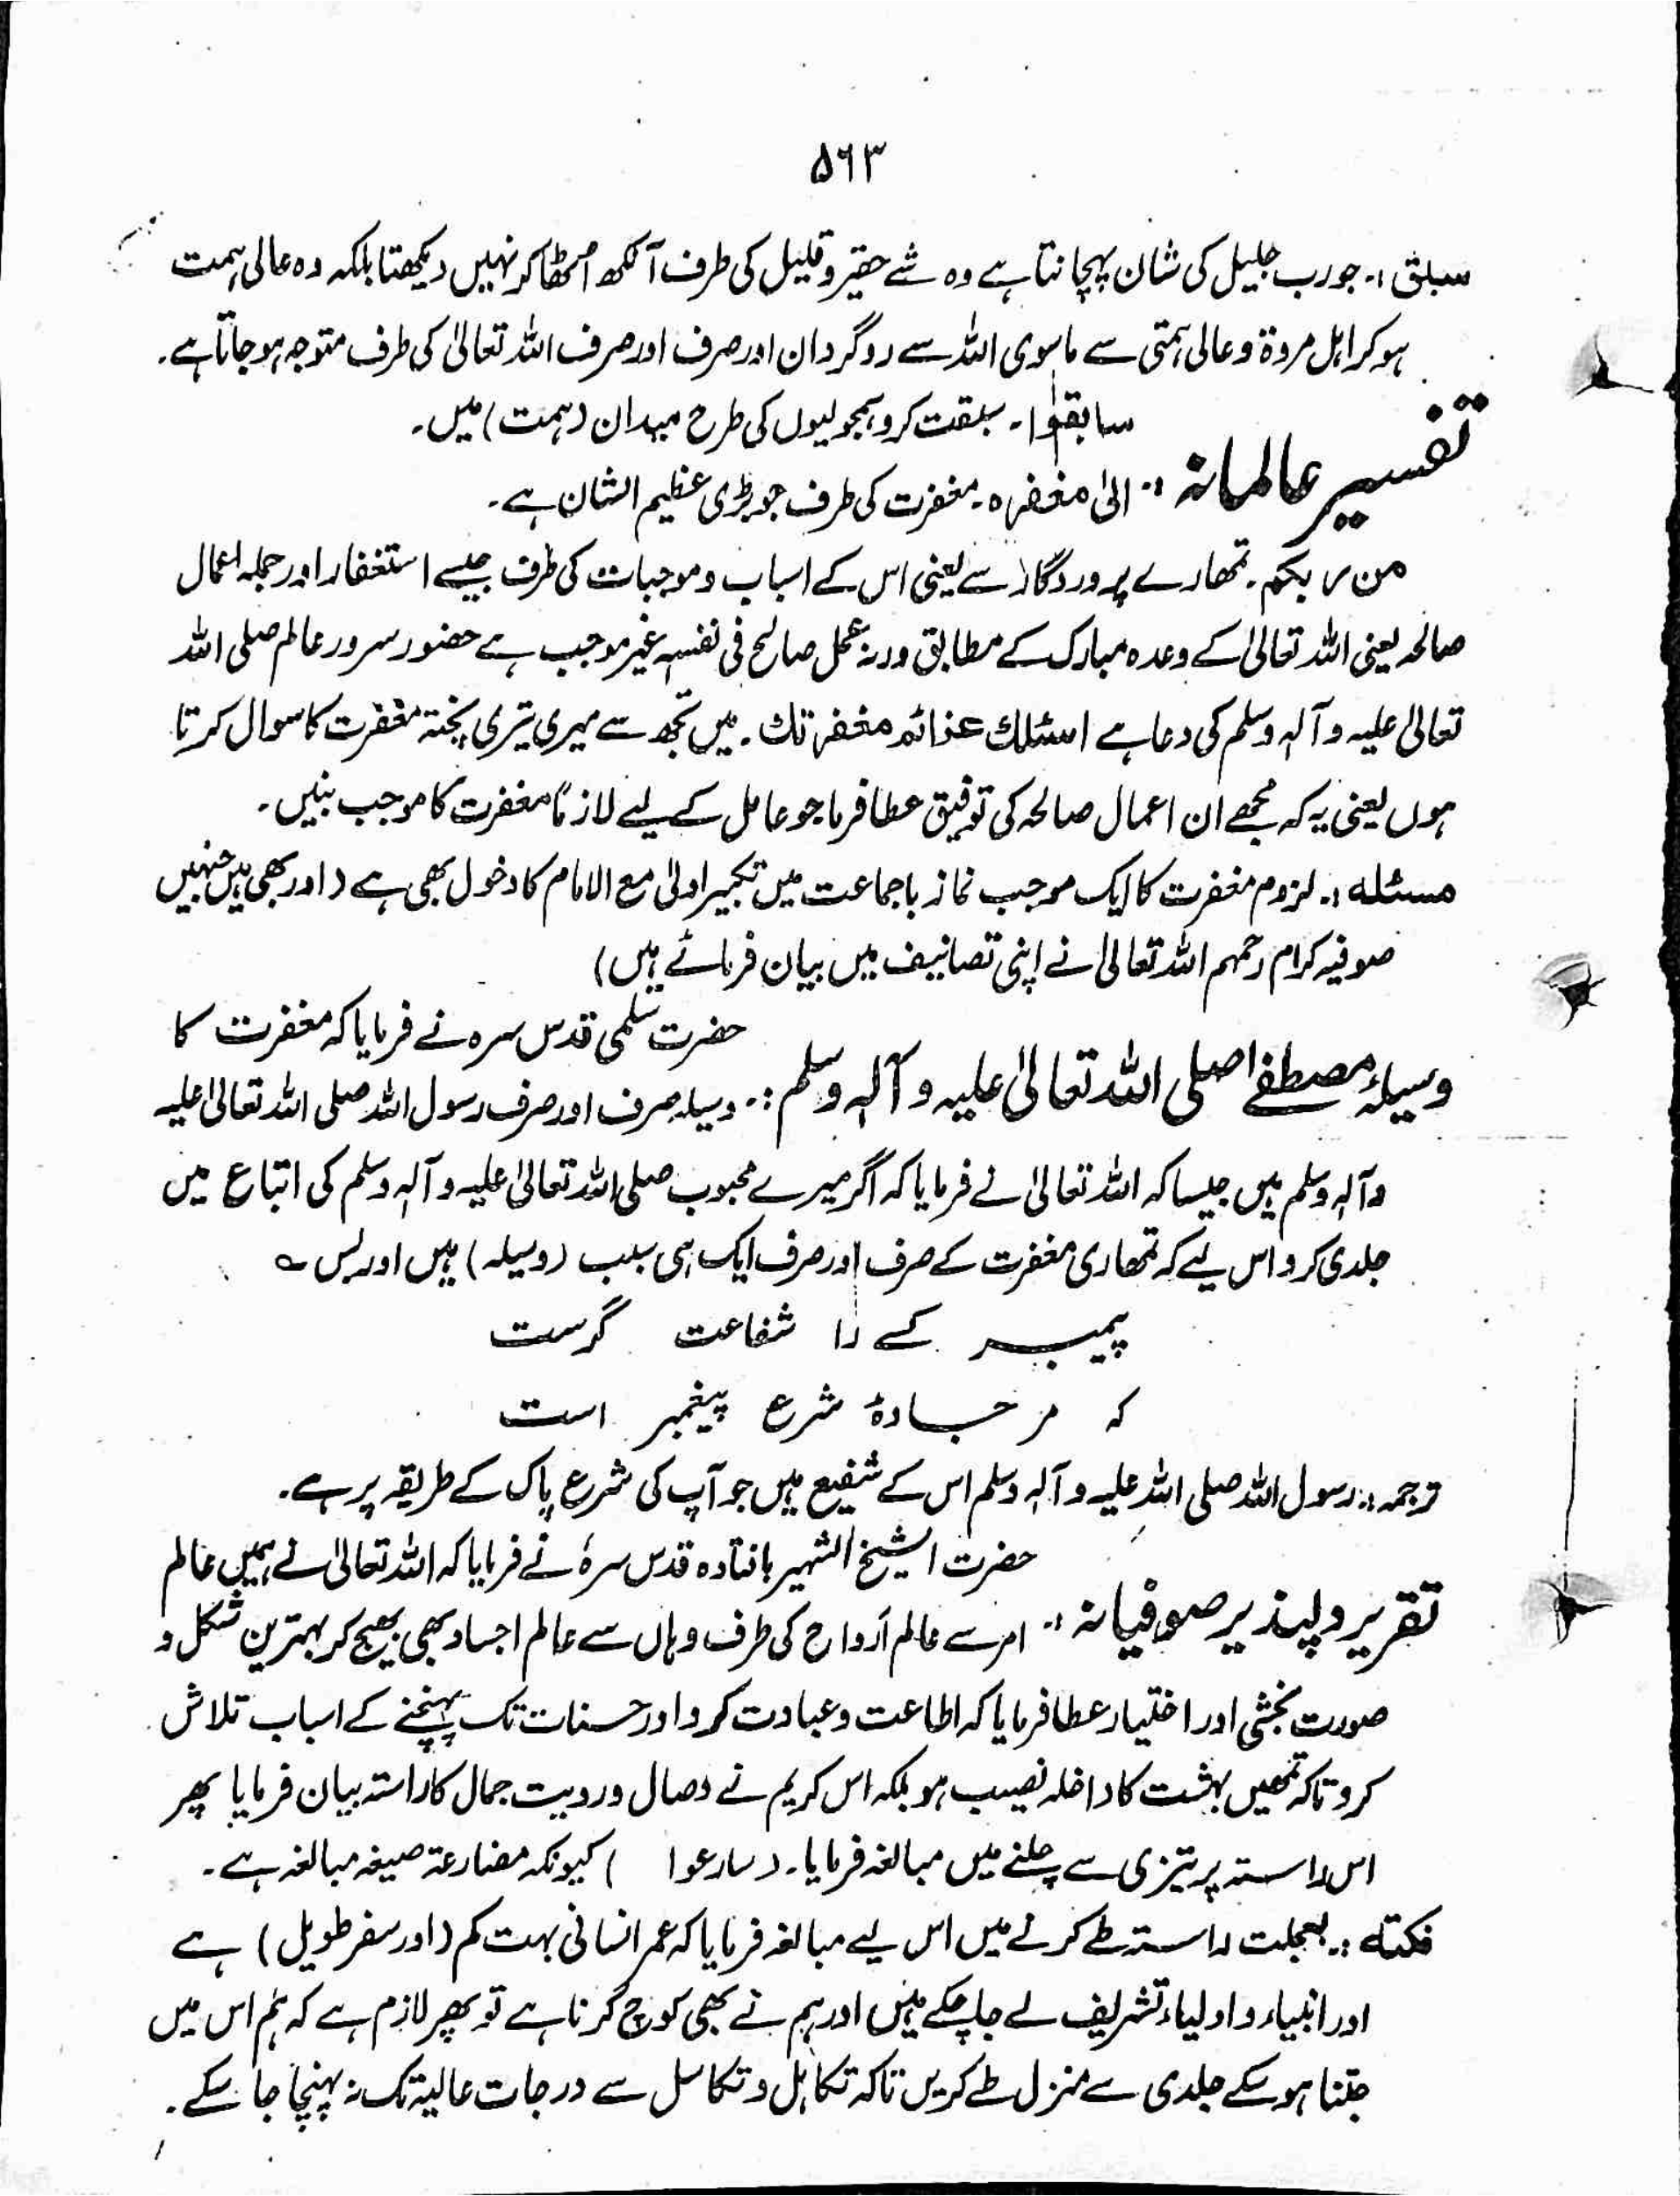 ۵۶۳
سبق :۔ جو رب جلیل کی شان پہچانتا ہے وہ شے حقیر و قلیل کی طرف آنکھ اٹھا کر نہیں دیکھتا بلکہ وہ عالی ہمت
ہو کر اہل مروۃ و عالی ہمتی سے ماسوی اللہ سے روگردان اور صرف اور صرف اللہ تعالیٰ کی طرف متوجہ ہو جاتا ہے۔
سابقوا۔ سبقت کرو ہمجولیوں کی طرح میدان (ہمت) میں۔
تفسیر عالمانہ :۔ الیٰ مغفرہ۔ مغفرت کی طرف جو بڑی عظیم الشان ہے۔
من ربکم۔ تمھارے پروردگار سے یعنی اس کے اسباب و موجبات کی طرف جیسے استغفار اور جملہ اعمال
صالحہ یعنی اللہ تعالیٰ کے وعدہ مبارک کے مطابق ورنہ عمل صالح فی نفسہٖ غیر موجب ہے حضور سرور عالم صلی اللہ
تعالیٰ علیہ و آلہٖ وسلم کی دعا ہے اسئلک عزائم مغفرتک۔ میں تجھ سے میری تیری پختہ مغفرت کا سوال کرتا
ہوں یعنی یہ کہ مجھے ان اعمال صالحہ کی توفیق عطا فرما جو عامل کے لیے لازماً مغفرت کا موجب بنیں۔
مسئلہ :۔ لزوم مغفرت کا ایک موجب نماز باجماعت میں تکبیر اولیٰ مع الامام کا دخول بھی ہے (اور بھی ہیں جنہیں
صوفیہ کرام رحمہم اللہ تعالیٰ نے اپنی تصانیف میں بیان فرمائے ہیں)
حضرت سلمی قدس سرہ نے فرمایا کہ مغفرت کا
وسیلۂ مصطفےٰ صلی اللہ تعالیٰ علیہ و آلہٖ وسلم :۔ وسیلہ صرف اور صرف رسول اللہ صلی اللہ تعالیٰ علیہ
وآلہٖ وسلم ہیں جیسا کہ اللہ تعالیٰ نے فرمایا کہ اگر میرے محبوب صلی اللہ تعالیٰ علیہ و آلہٖ وسلم کی اتباع میں
جلدی کرو اس لیے کہ تمھاری مغفرت کے صرف اور صرف ایک ہی سبب (وسیلہ) ہیں اور بس ؎
پیمبر کسے را شفاعت گرست
کہ بر جادۂ شرع پیغمبر است
ترجمہ :۔ رسول اللہ صلی اللہ علیہ و آلہٖ وسلم اس کے شفیع ہیں جو آپ کی شرع پاک کے طریقہ پر ہے۔
حضرت الشیخ الشہیر بافتادہ قدس سرہٗ نے فرمایا کہ اللہ تعالیٰ نے ہمیں عالم
تقریر دلپذیر صوفیانہ :۔ امر سے عالم ارواح کی طرف وہاں سے عالم اجساد بھی بھیج کر بہترین شکل و
صورت بخشی اور اختیار عطا فرمایا کہ اطاعت و عبادت کرو اور حسنات تک پہنچنے کے اسباب تلاش
کرو تاکہ تمھیں بہشت کا داخلہ نصیب ہو بلکہ اس کریم نے وصال و رویت جمال کا راستہ بیان فرمایا پھر
اس راستہ پر تیزی سے چلنے میں مبالغہ فرمایا۔ (سارعوا ) کیونکہ مضارعۃ صیغہ مبالغہ ہے۔
نکتہ :۔ بعجلت راستہ طے کرنے میں اس لیے مبالغہ فرمایا کہ عمر انسانی بہت کم (اور سفر طویل) ہے
اور انبیاء و اولیاء تشریف لے جا چکے ہیں اور ہم نے بھی کوچ کرنا ہے تو پھر لازم ہے کہ ہم اس میں
جتنا ہو سکے جلدی سے منزل طے کریں تاکہ تکاہل و تکاسل سے درجات عالیہ تک نہ پہنچا جا سکے۔